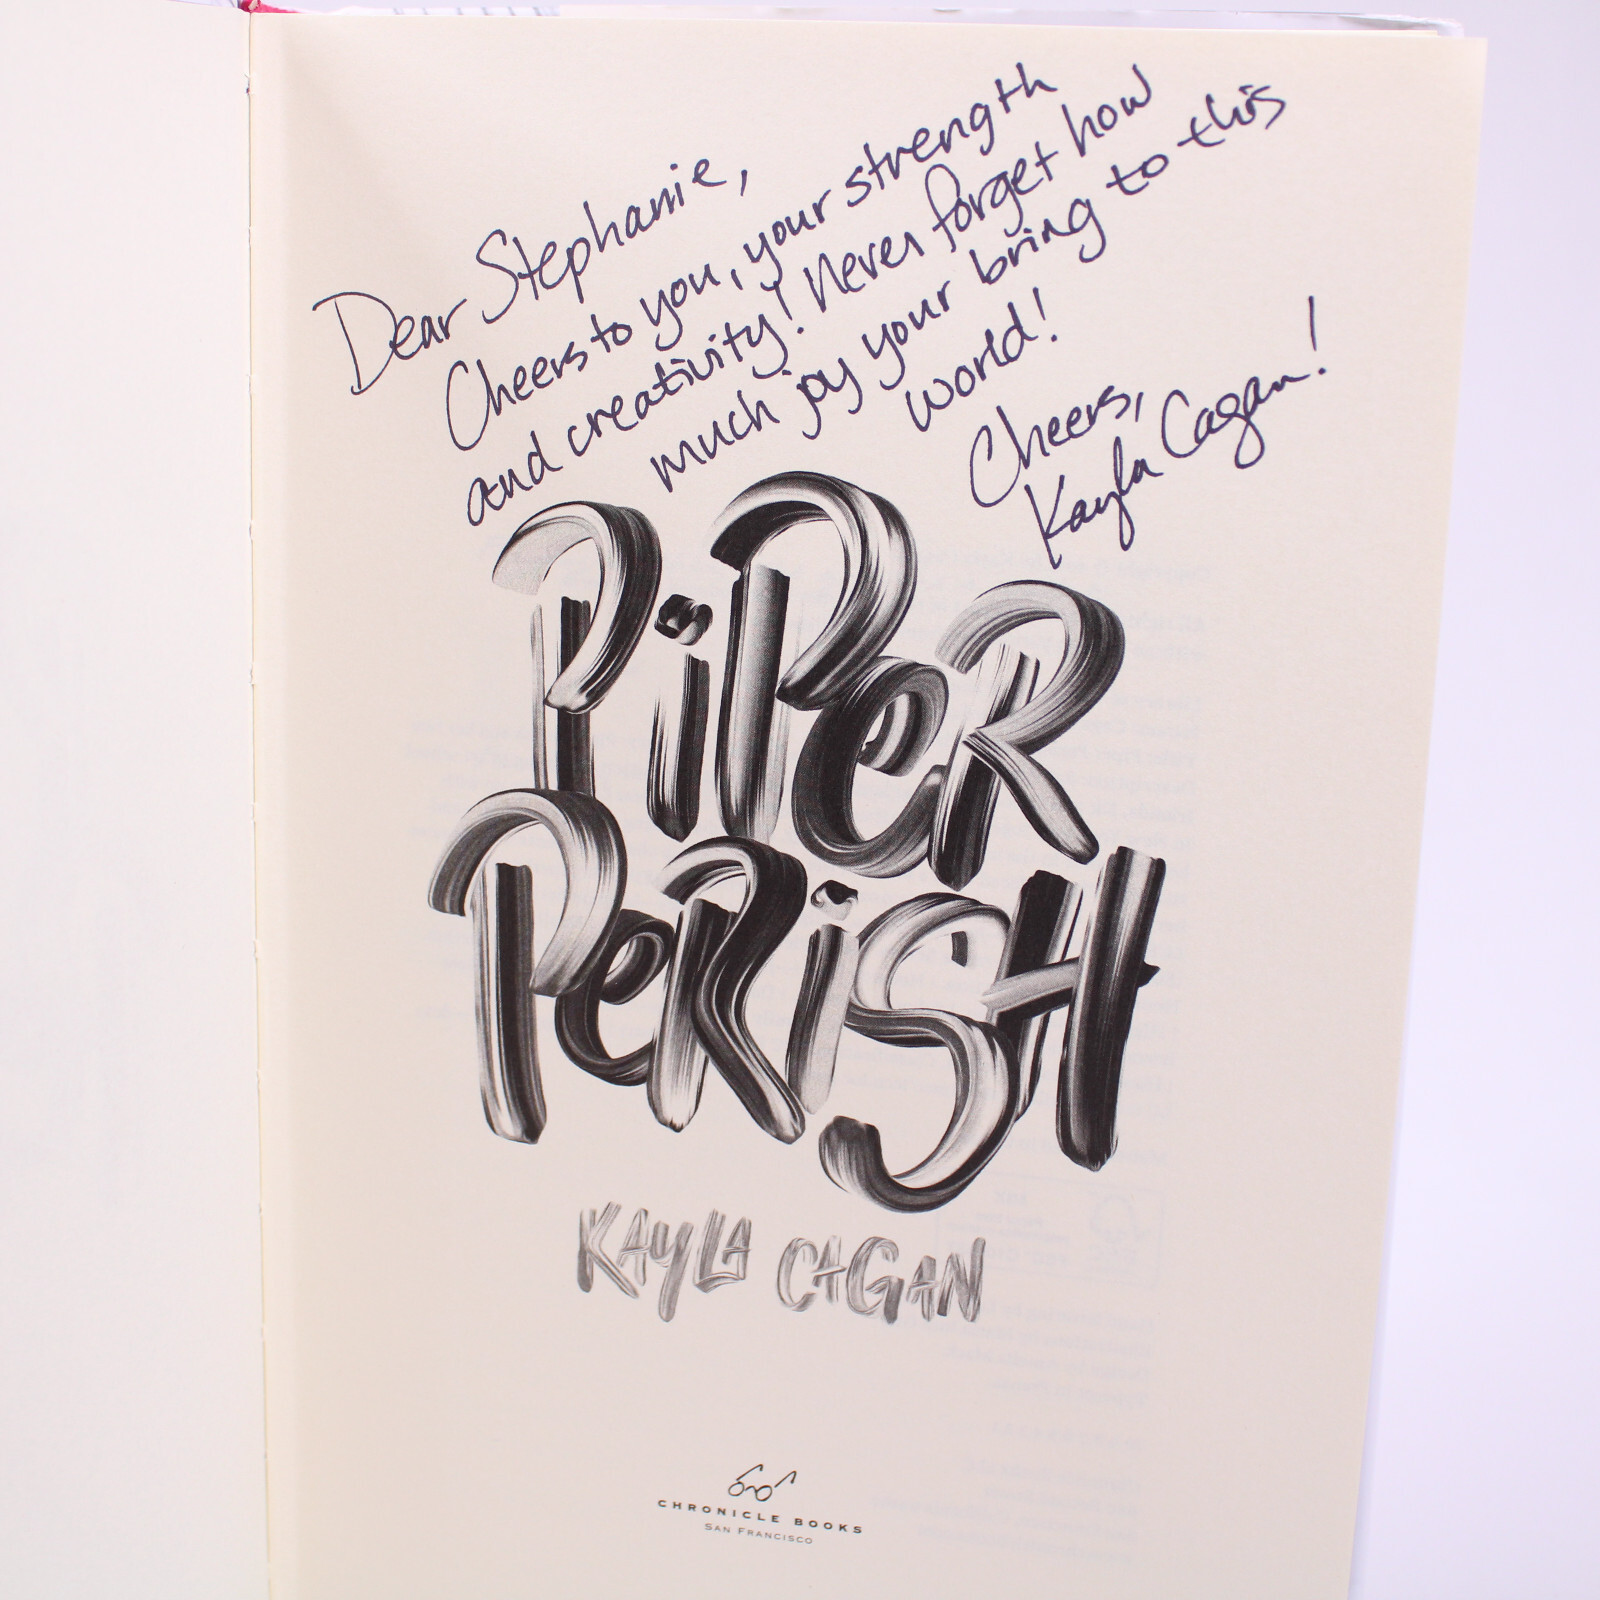 Dear Stephanie,
Cheers to you, your strength
and creativity! Never forget how
much joy your bring to this
world!
Cheers,
Kayla Cagan!
PiPeR
PeRiSH
KAYLA CAGAN
CHRONICLE BOOKS
SAN FRANCISCO